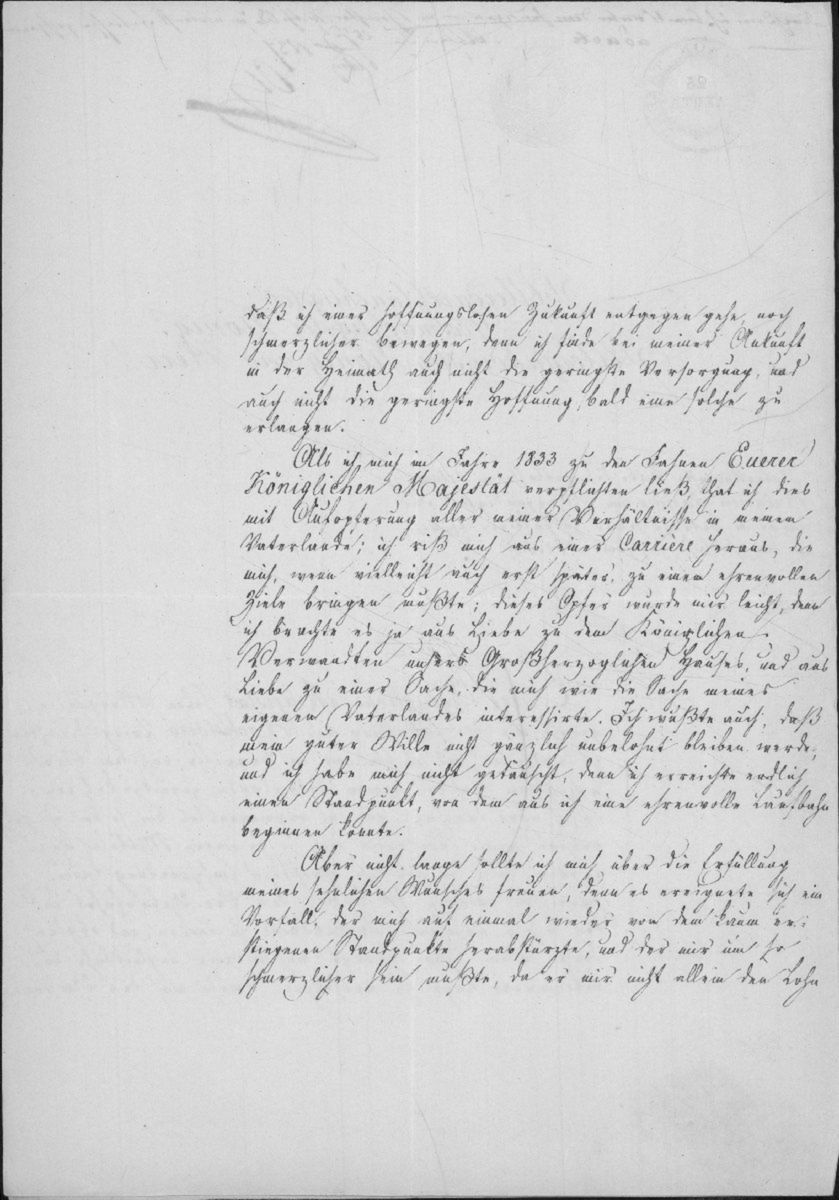 daß ich einer hoffnungslosen Zukunft entgegen gehe, noch
schmerzlicher bewegen, denn ich finde bei meiner Ankunft
in der Heimath auch nicht die geringste Versorgung, und
auch nicht die geringste Hoffnung, bald eine solche zu
erlangen.
Als ich mich im Jahre 1833 zu den Fahnen Euerer
Königlichen Majestät verpflichten ließ, that ich dies
mit Aufopferung aller meiner Verhältnisse in meinem
Vaterlande; ich riß mich aus einer Carrière heraus, die
mich, wenn vielleicht auch erst später, zu einem ehrenvollen
Ziele bringen mußte; dieses Opfer wurde mir leicht, denn
ich brachte es ja aus Liebe zu dem Königlichen
Verwandten unsers Großherzoglichen Hauses, und aus
Liebe zu einer Sache, die mich wie die Sache meines
eigenen Vaterlandes interessirte. Ich wußte auch, daß
mein guter Wille nicht gänzlich unbelohnt bleiben werde,
und ich habe mich nicht getäuscht, denn ich erreichte endlich
einen Standpunkt, von dem aus ich eine ehrenvolle Laufbahn
beginnen konnte.
Aber nicht lange sollte ich mich über die Erfüllung
meines sehnlichen Wunsches freuen, denn es ereignete sich ein
Vorfall, der mich auf einmal wieder von dem kaum er-
stiegenen Standpunkte herabstürzte, und der mir um so
schmerzlicher sein mußte, da er mir nicht allein den Lohn